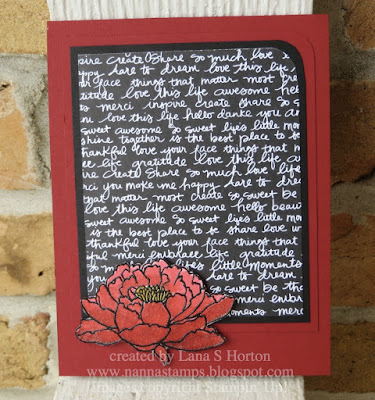 pire create share so much love
happy dare to dream love this life
create share face things that matter most
titude love this life awesome hello
ts merci inspire create share so s
n love this life hello danke you a
sweet awesome so sweet life's little mom
shine together is the best place to be
thankful love your face things that m
ee life gratitude love this life a
ire create share so much love life
rci you make me happy dare to dre
that matter most create so sweet be
love this life awesome hello beau
sweet awesome so sweet life's little
is the best place to be share love
thankful love your face things that
ful merci embrace life gratitude
so m life's little moments
dare to dream
sweet be tha
merci embra
moments merc
created by Lana S Horton
www.nannastamps.blogspot.com
images copyright Stampin' Up!